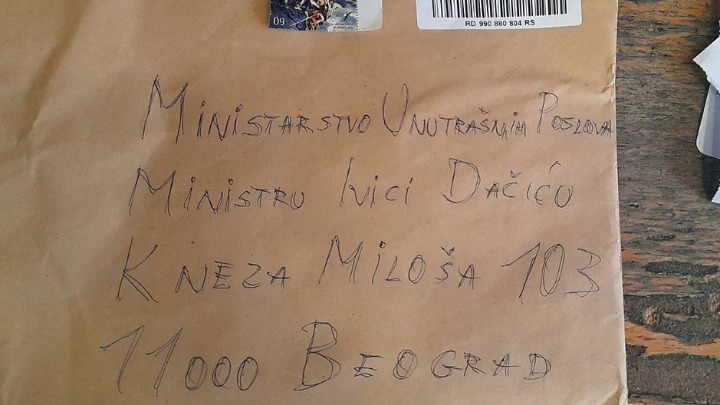 09
RD 990 880 804 RS
Ministarstvo Unutrašnjih Poslova
Ministru Ivici Dačiću
Kneza Miloša 103
11000 Beograd